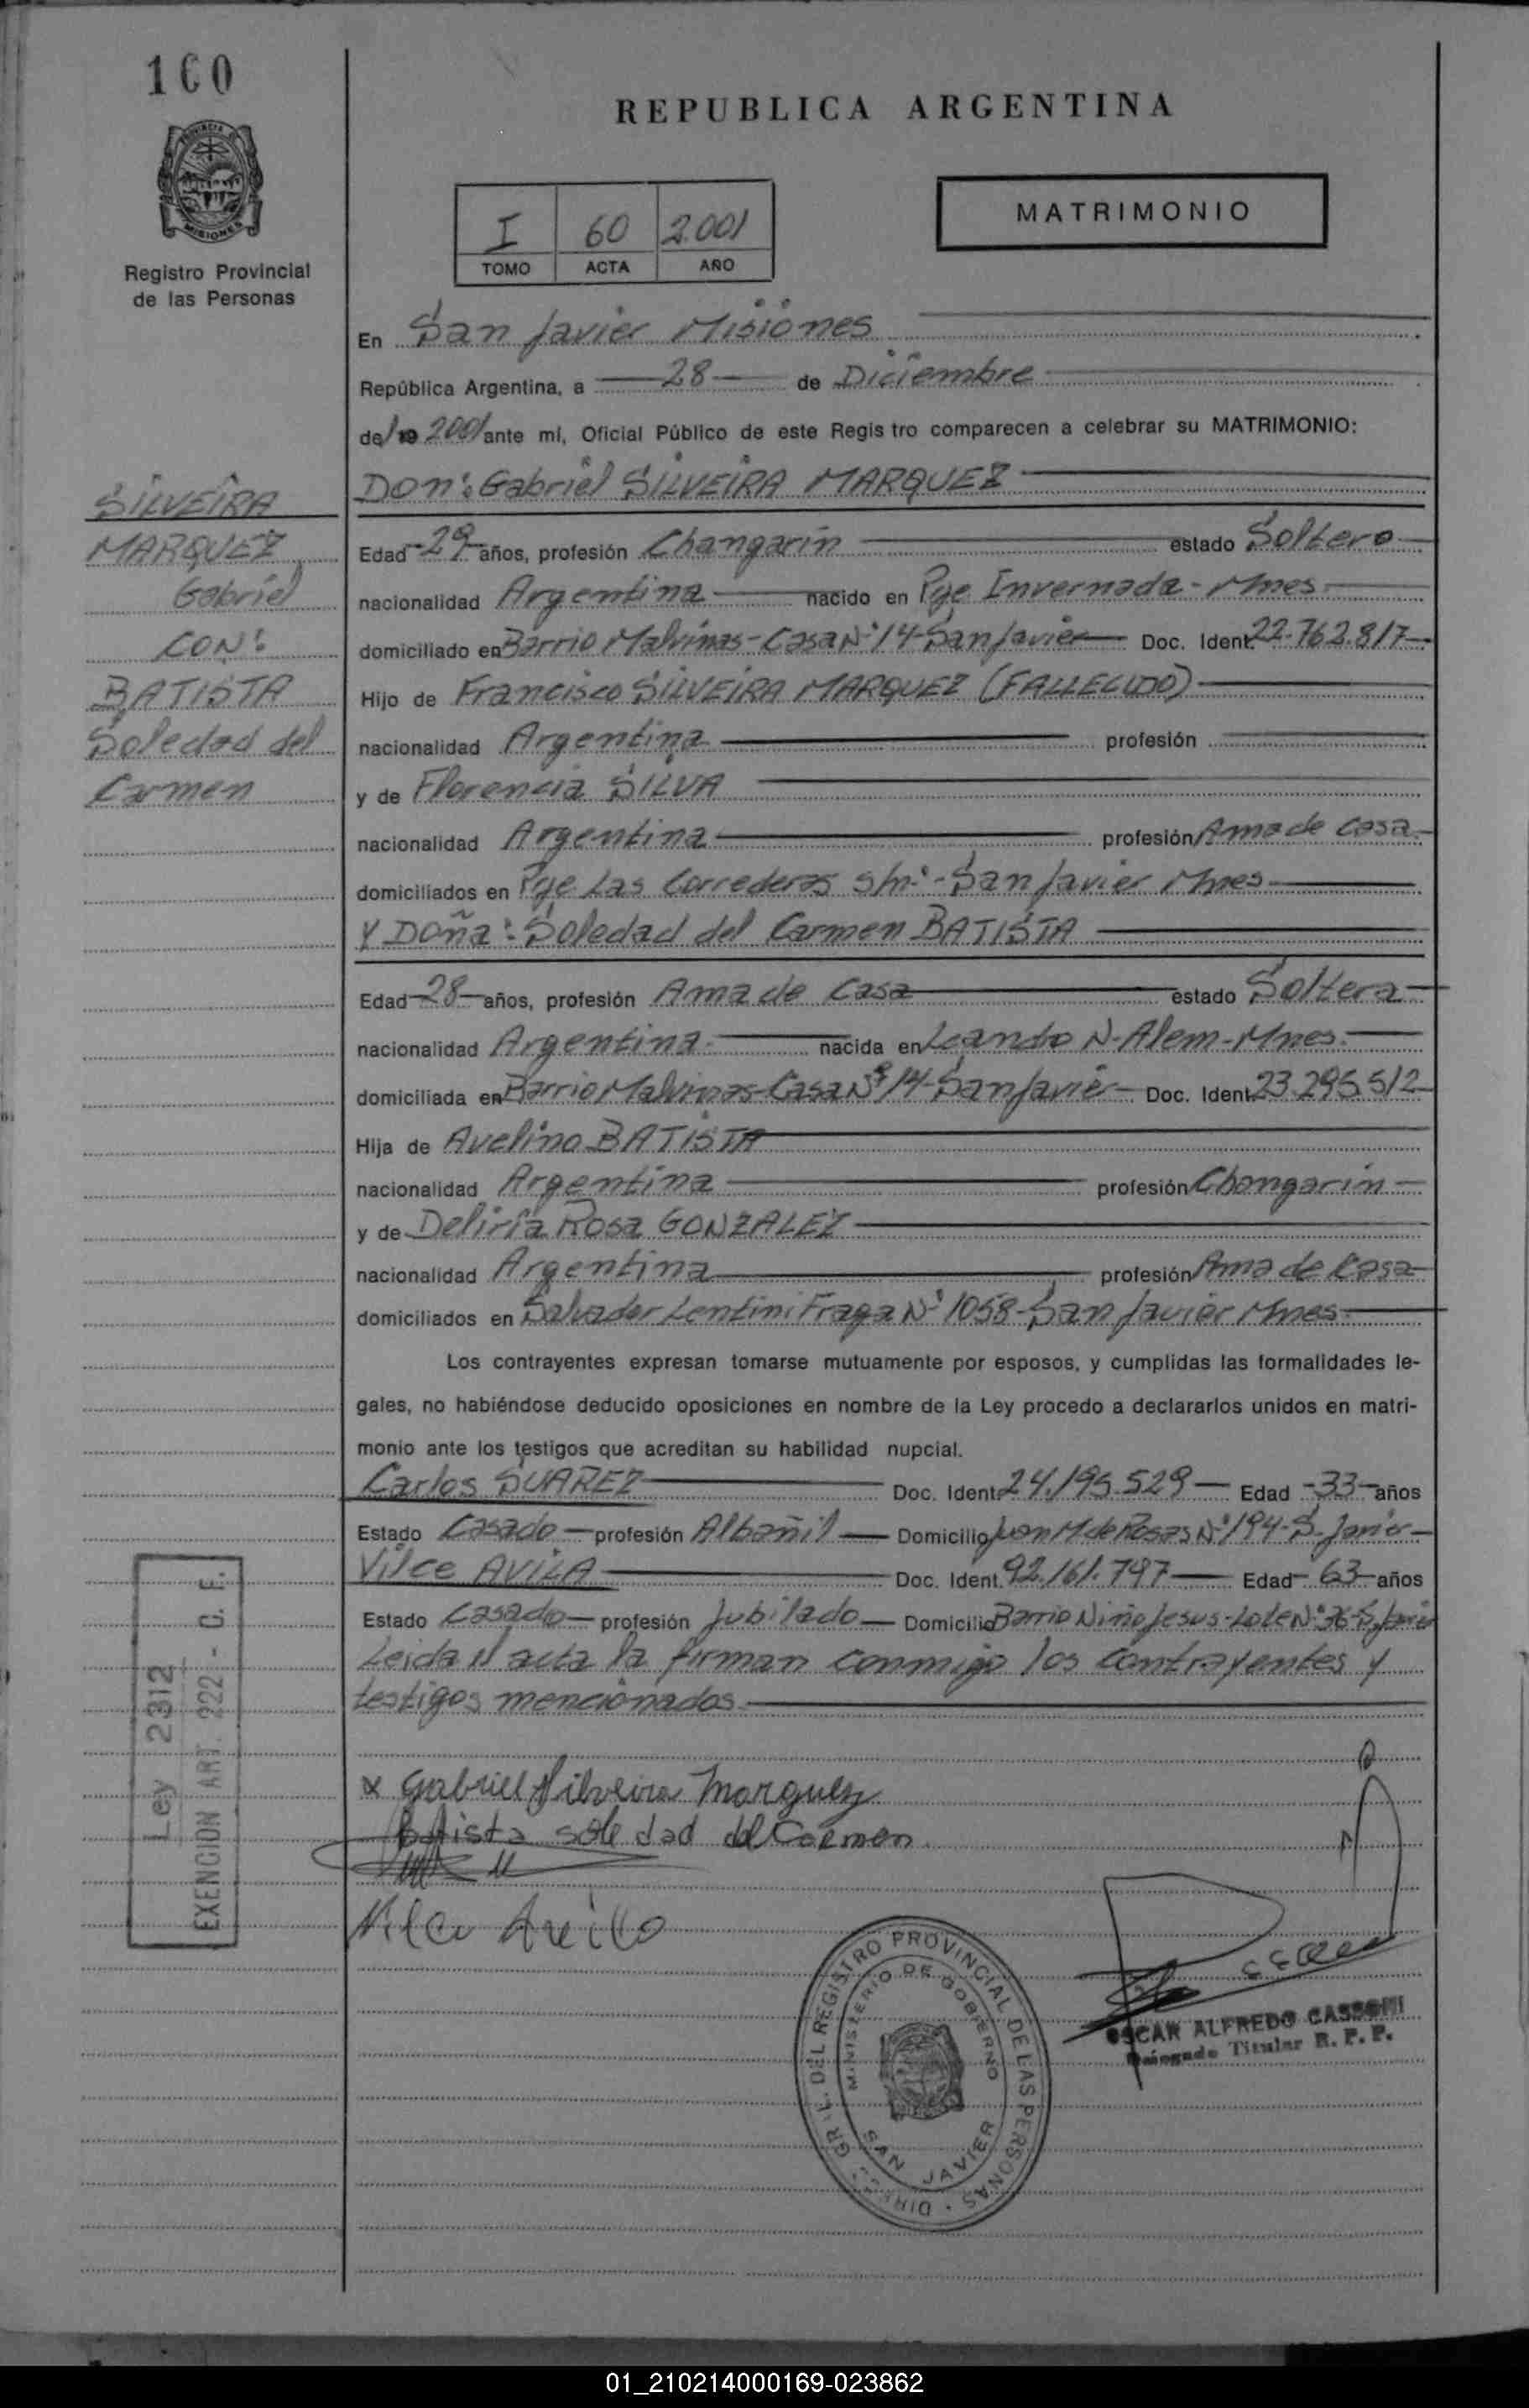 160
REPUBLICA ARGENTINA
MATRIMONIO
I 60 2.001
TOMO ACTA AÑO
Registro Provincial
de las Personas
En San Javier Misiones
República Argentina, a 28 de Diciembre
del 19 2001 ante mí, Oficial Público de este Regis tro comparecen a celebrar su MATRIMONIO:
Don: Gabriel SILVEIRA MARQUEZ
SILVEIRA
MARQUEZ
Gabriel
CON:
BATISTA
Soledad del
Carmen
Edad -29- años, profesión Changarín estado Soltero
nacionalidad Argentina nacido en Pje Invernada - Mnes
domiciliado en Barrio Malvinas - Casa Nº 14 - San Javier Doc. Ident. 22.762.817
Hijo de Francisco SILVEIRA MARQUEZ (FALLECIDO)
nacionalidad Argentina profesión
y de Florencia SILVA
nacionalidad Argentina profesión Ama de Casa
domiciliados en Pje Las Correderas s/nº - San Javier Mnes
Y Doña: Soledad del Carmen BATISTA
Edad 28 años, profesión Ama de Casa estado Soltera
nacionalidad Argentina nacida en Leandro N. Alem - Mnes.
domiciliada en Barrio Malvinas - Casa Nº 14 - San Javier Doc. Ident. 23.295.512
Hija de Avelino BATISTA
nacionalidad Argentina profesión Changarín
y de Deliria Rosa GONZALEZ
nacionalidad Argentina profesión Ama de Casa
domiciliados en Salvador Lentini Fraga Nº 1058 - San Javier Mnes.
Los contrayentes expresan tomarse mutuamente por esposos, y cumplidas las formalidades le-
gales, no habiéndose deducido oposiciones en nombre de la Ley procedo a declararlos unidos en matri-
monio ante los testigos que acreditan su habilidad nupcial.
Carlos SUAREZ Doc. Ident. 24.195.529 Edad -33- años
Estado Casado profesión Albañil Domicilio Juan M. de Rosas Nº 194 - S. Javier
Vilce AVILA Doc. Ident. 92.161.797 Edad 63 años
Estado Casado profesión Jubilado Domicilio Barrio Niño Jesus - Lote Nº 36 - S. Javier
Leida el acta la firman conmigo los contrayentes y
testigos mencionados.
Ley 2312
EXENCION ART. 222 - C. F.
x Gabriel Silveira Marquez
Batista soledad del Carmen
Vilce Avila
DIREC. GRAL. DEL REGISTRO PROVINCIAL DE LAS PERSONAS
MINISTERIO DE GOBIERNO
SAN JAVIER
OSCAR ALFREDO CASSONI
Delegado Titular R. P. P.
PROVINCIA DE
MISIONES
01_210214000169-023862